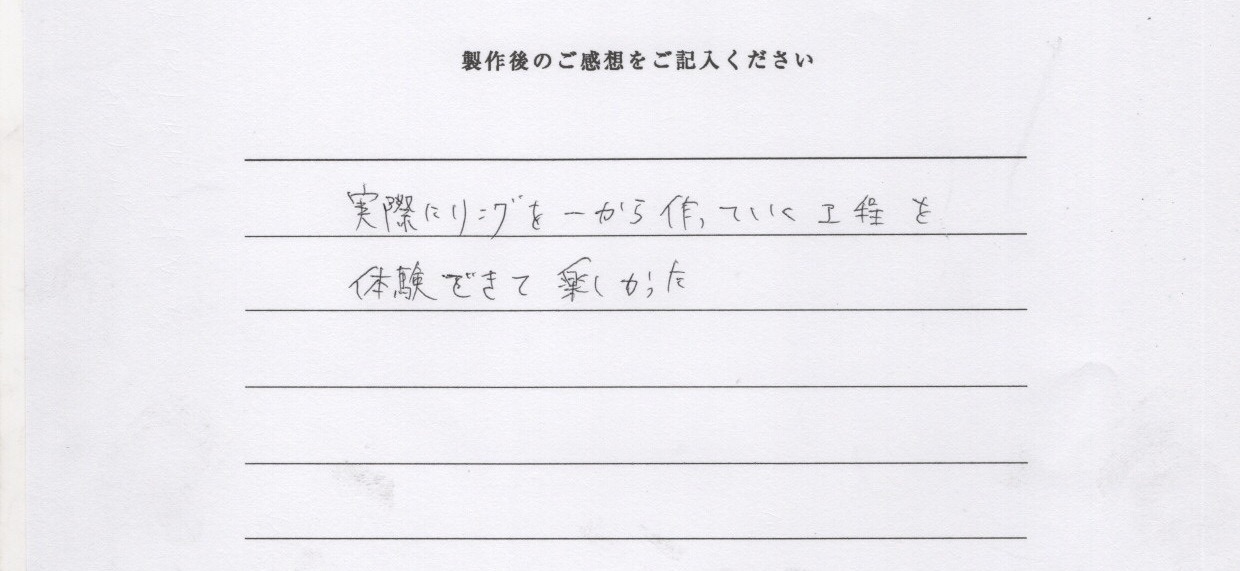 製作後のご感想をご記入ください
実際にリングを一から作っていく工程を
体験できて楽しかった